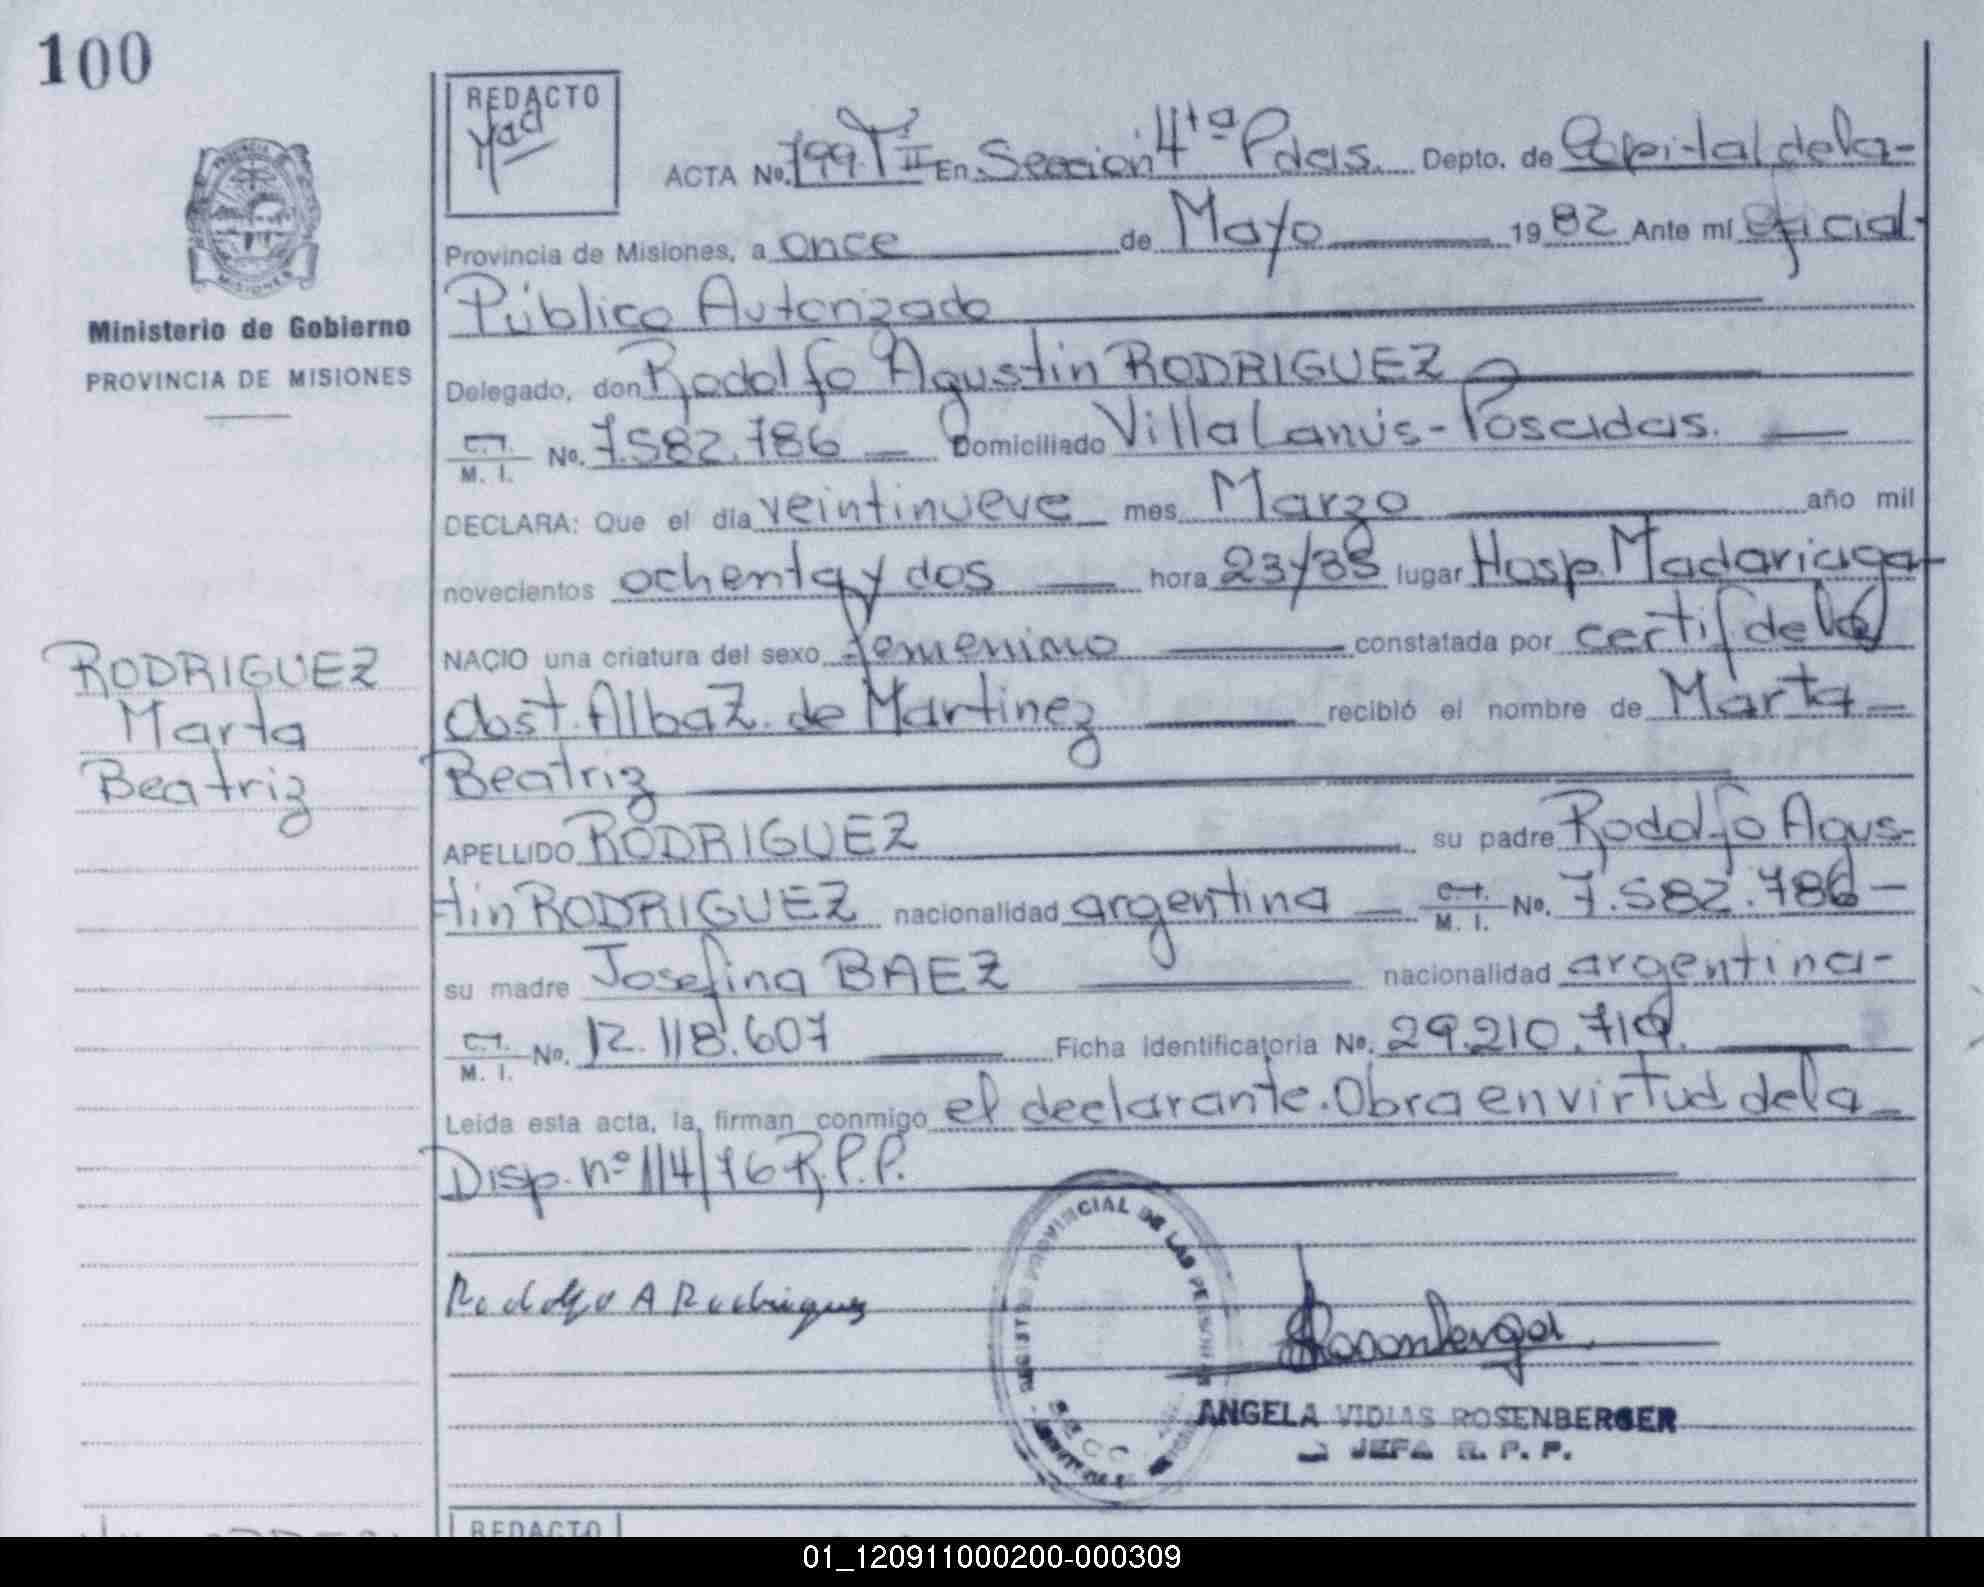 100
REDACTO
ACTA No. 799 T II En Sección 4ta Pdas. Depto. de Capital de la-
Provincia de Misiones, a once de Mayo 1982 Ante mí Oficial-
Público Autorizado
Ministerio de Gobierno
PROVINCIA DE MISIONES
Delegado, don Rodolfo Agustin RODRIGUEZ
C.I. / M. I. No. 7.582.786 Domiciliado Villa Lanús - Posadas.
DECLARA: Que el día veintinueve mes Marzo año mil
novecientos ochenta y dos hora 23/35 lugar Hosp. Madariaga
NACIO una criatura del sexo femenino constatada por certif de la
Obst. Alba Z. de Martinez recibió el nombre de Marta
Beatriz
RODRIGUEZ
Marta
Beatriz
APELLIDO RODRIGUEZ su padre Rodolfo Agus-
tin RODRIGUEZ nacionalidad argentina C.I. / M. I. No. 7.582.786-
su madre Josefina BAEZ nacionalidad argentina-
C.I. / M. I. No. 12.118.607 Ficha identificatoria No. 29.210.719.
Leída esta acta, la firman conmigo el declarante. Obra en virtud de la
Disp. nº 114/76 R.P.P.
REGISTRO PROVINCIAL DE LAS PERSONAS
Rodolfo A Rodriguez
Rosenberger
ANGELA VIDIAS ROSENBERGER
JEFA R. P. P.
REDACTO
01_120911000200-000309